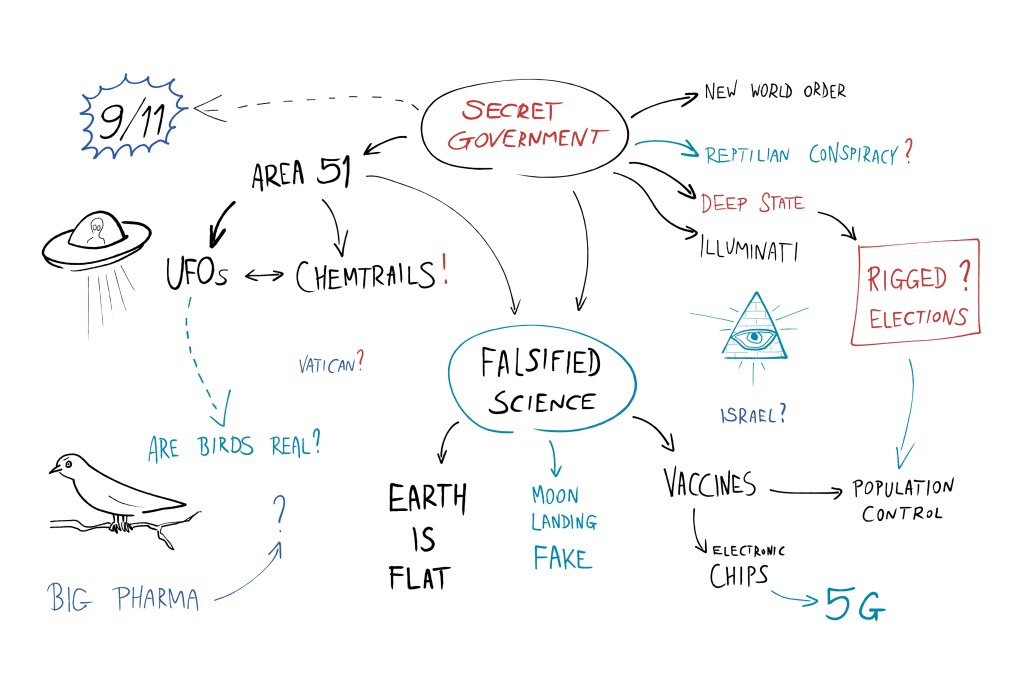 9/11
SECRET
GOVERNMENT
NEW WORLD ORDER
REPTILIAN CONSPIRACY?
DEEP STATE
ILLUMINATI
AREA 51
UFOs
CHEMTRAILS!
RIGGED ?
ELECTIONS
VATICAN?
FALSIFIED
SCIENCE
ISRAEL?
ARE BIRDS REAL?
EARTH
IS
FLAT
MOON
LANDING
FAKE
VACCINES
POPULATION
CONTROL
?
ELECTRONIC
CHIPS
BIG PHARMA
5G